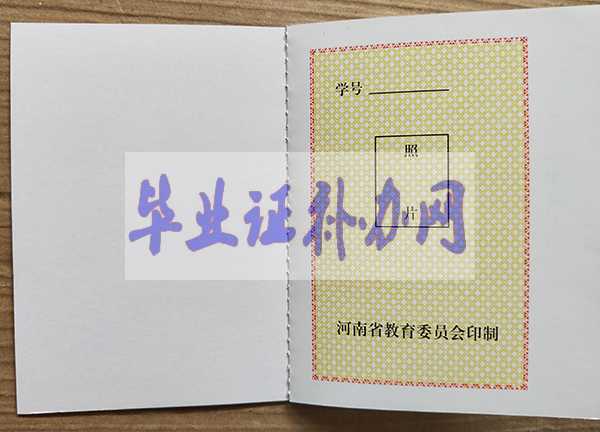 学号
照
片
毕业证补办网
河南省教育委员会印制